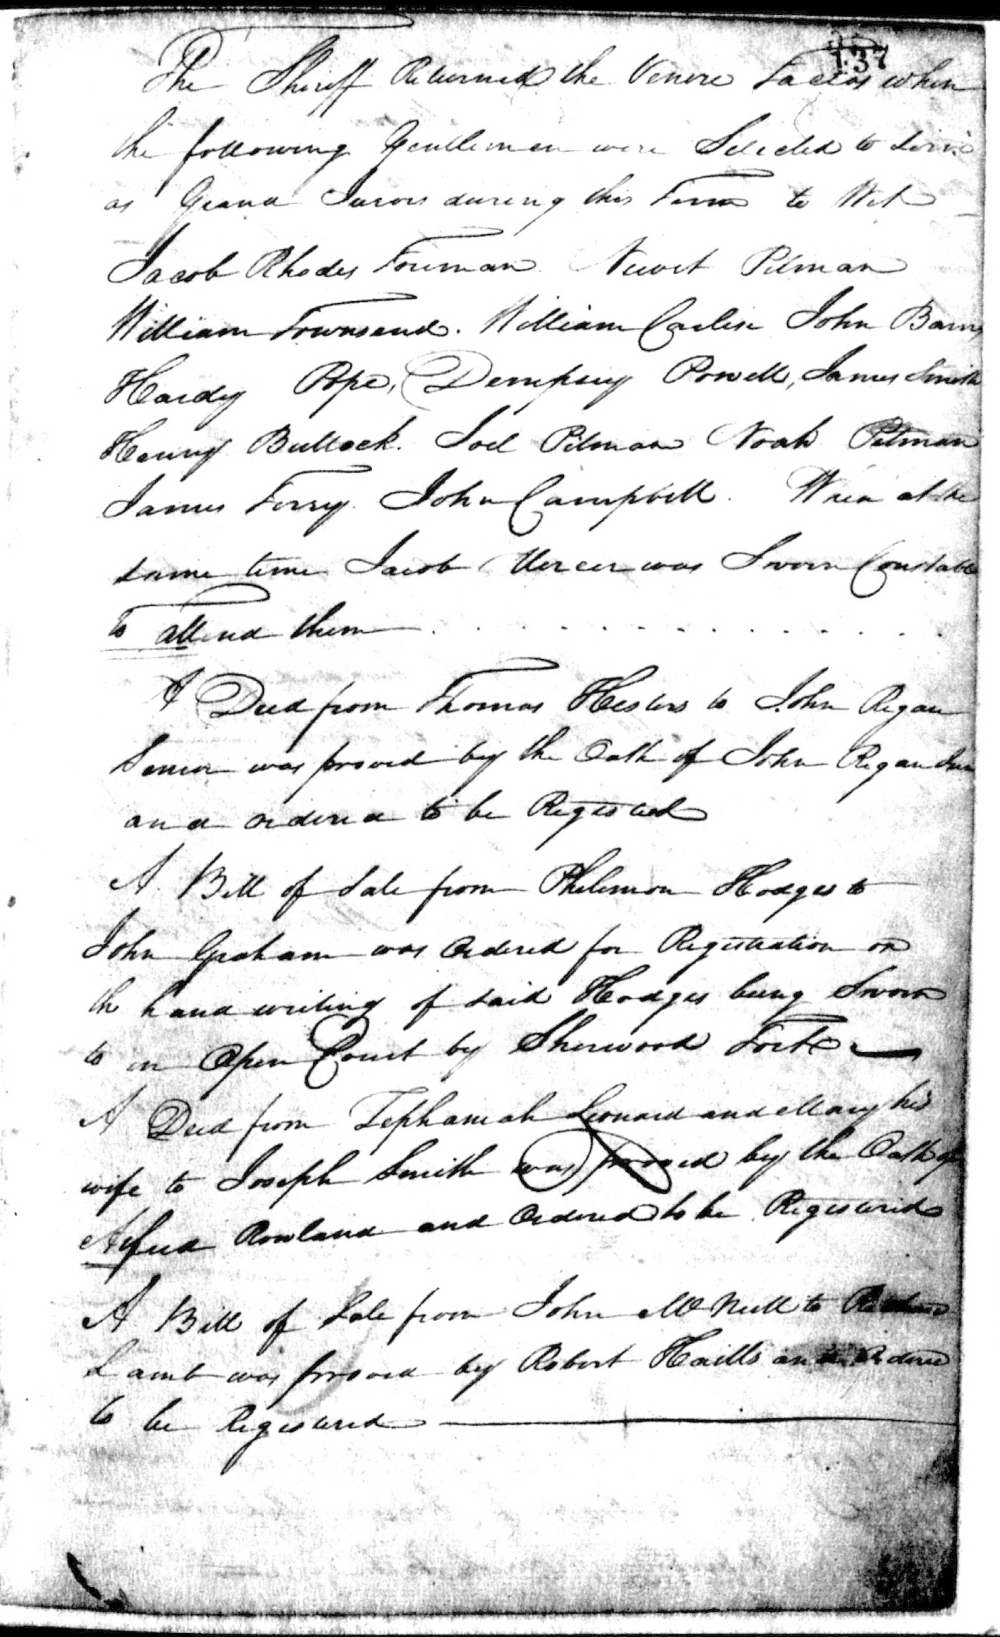 137
The Sheriff Returned the Venire Facias when
the following Gentlemen were Selected to Serve
as Grand Jurors during this Term to Wit
Jacob Rhodes Foreman Newit Pitman
William Townsend. William Carlise John Barns
Hardy Pope, Dempsey Powell, James Smith
Henry Bullock. Joel Pitman Noah Pitman
James Terry. John Campbell. When at the
same time Jacob Mercer was Sworn Constable
to attend them
A Deed from Thomas Hesters to John Regan
Senior was proved by the Oath of John Regan Junr
and ordered to be Registed
A Bill of Sale from Philemon Hodges to
John Graham was Ordered for Registration on
the hand writing of said Hodges being Sworn
to in Open Court by Sherwood Fort
A Deed from Zephaniah Leonard and Mary his
wife to Joseph Smith was proved by the Oath of
Alfred Rowland and Ordered to be Registered
A Bill of Sale from John McNeill to
Lamb was proved by Robert Haills and Ordered
to be Registered